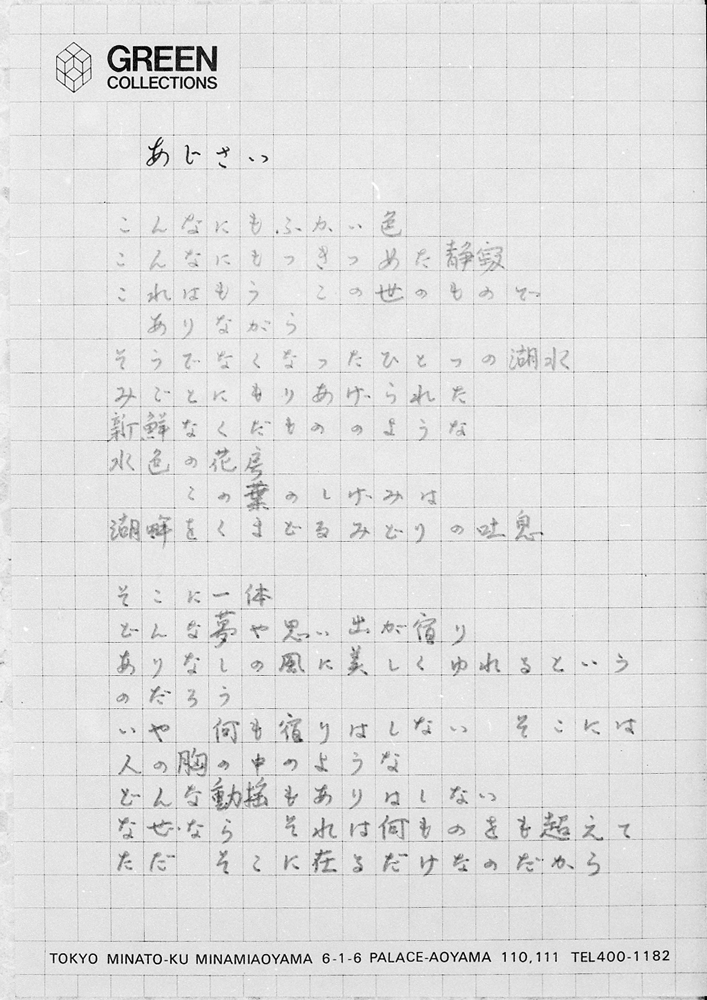 GREEN
COLLECTIONS
あじさい
こんなにもふかい色
こんなにもつきつめた静寂
これはもう この世のもので
ありながら
そうでなくなったひとつの湖水
みごとにもりあげられた
新鮮なくだもののような
水色の花房
この葉のしげみは
湖畔をくまどるみどりの吐息
そこに一体
どんな夢や思い出が宿り
ありなしの風に美しくゆれるという
のだろう
いや 何も宿りはしない そこには
人の胸の中のような
どんな動揺もありはしない
なぜなら それは何ものをも超えて
ただ そこに在るだけなのだから
TOKYO MINATO-KU MINAMIAOYAMA 6-1-6 PALACE-AOYAMA 110,111 TEL400-1182